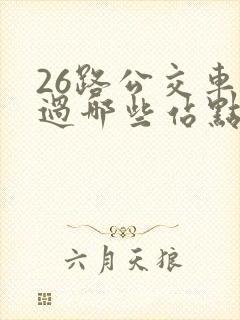 26路公交車
過哪些佔點
六月天狼